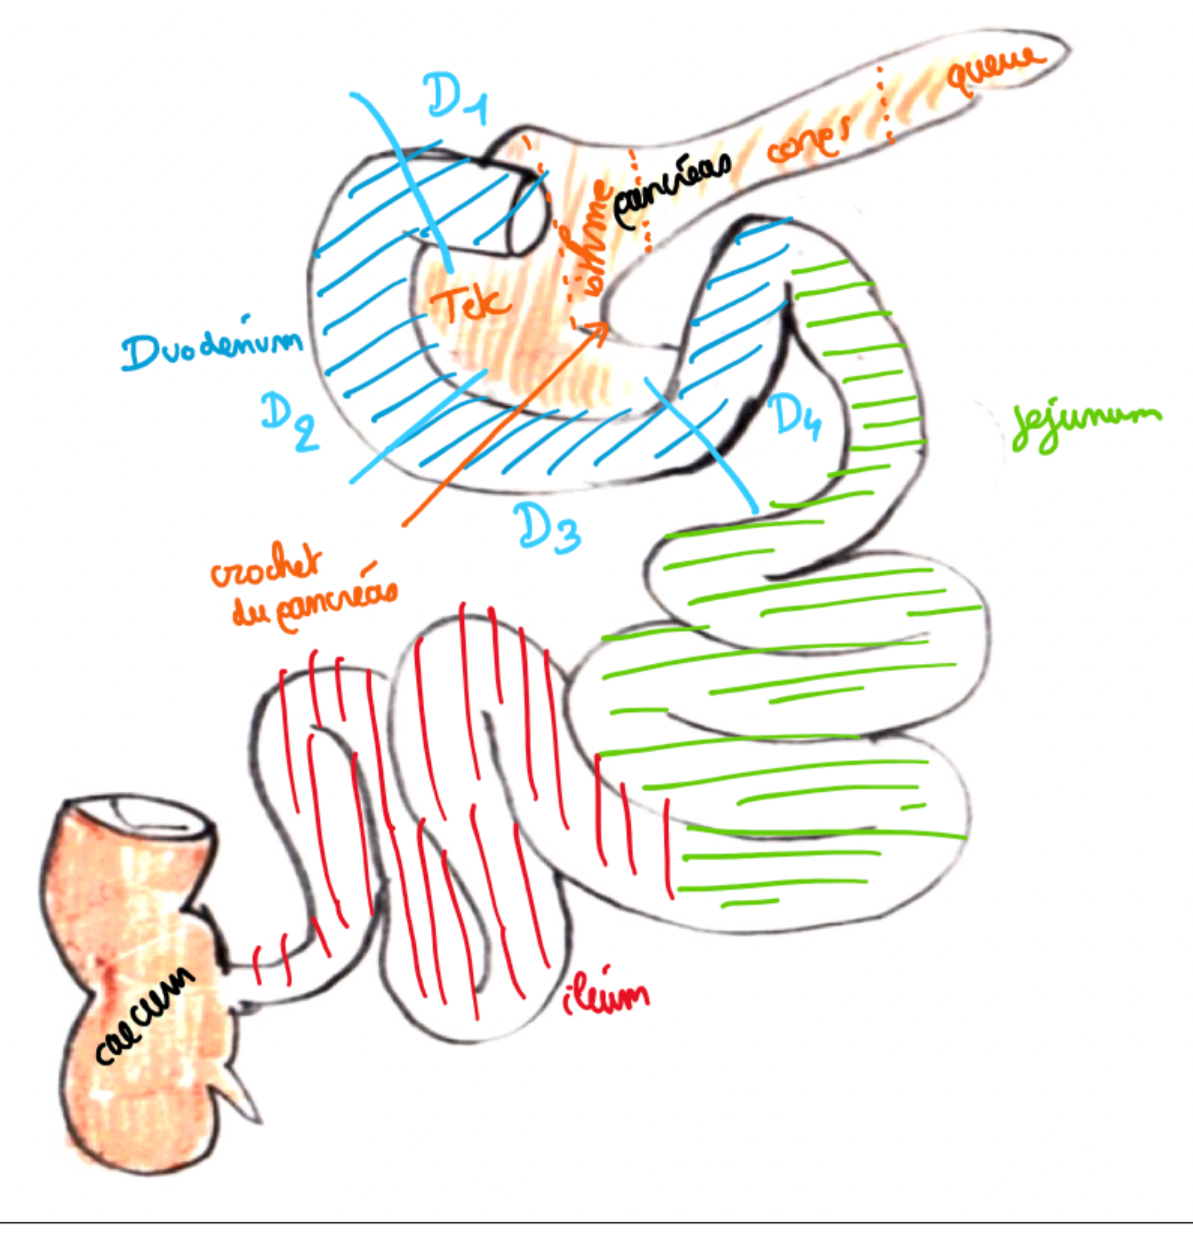 D1
queue
corps
pancréas
isthme
Tek
Duodénum
D2
D4
jejunum
D3
crochet
du pancréas
ileum
caecum